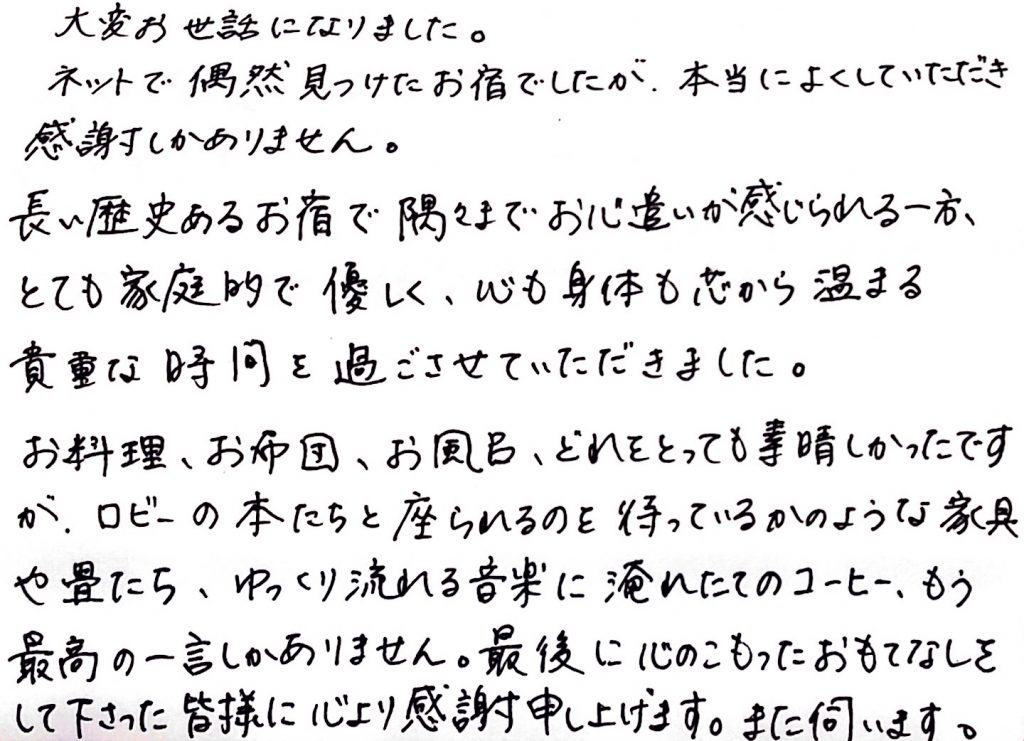 大変お世話になりました。
ネットで偶然見つけたお宿でしたが、本当によくしていただき
感謝しかありません。
長い歴史あるお宿で隅々までお心遣いが感じられる一方、
とても家庭的で優しく、心も身体も芯から温まる
貴重な時間を過ごさせていただきました。
お料理、お布団、お風呂、どれをとっても素晴しかったです
が、ロビーの本たちと座られるのを待っているかのような家具
や畳たち、ゆっくり流れる音楽に淹れたてのコーヒー、もう
最高の一言しかありません。最後に心のこもったおもてなしを
して下さった皆様に心より感謝申し上げます。また伺います。